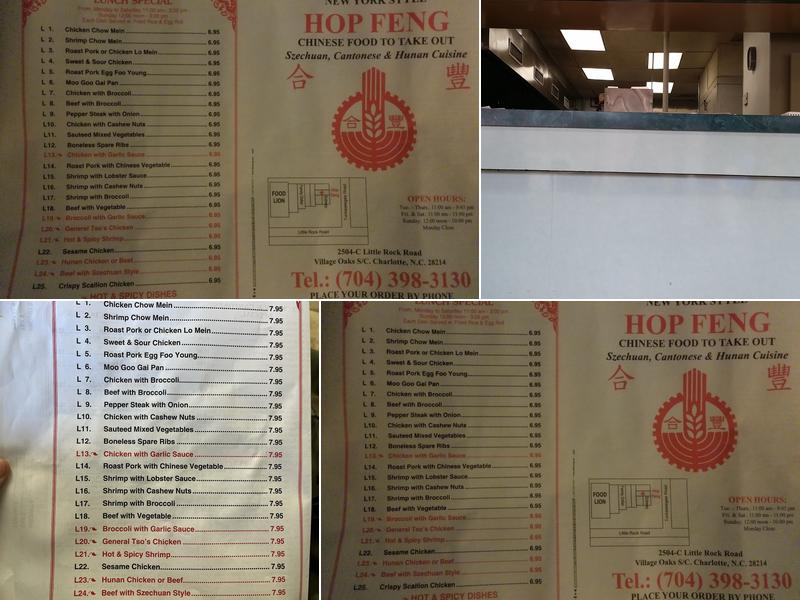 LUNCH SPECIAL
From, Monday to Saturday 11:00 am - 3:00 pm
Sunday 12:00 noon - 3:00 pm
Each Dish Served w. Fried Rice & Egg Roll
L 1. Chicken Chow Mein 6.95
L 2. Shrimp Chow Mein 6.95
L 3. Roast Pork or Chicken Lo Mein 6.95
L 4. Sweet & Sour Chicken 6.95
L 5. Roast Pork Egg Foo Young 6.95
L 6. Moo Goo Gai Pan 6.95
L 7. Chicken with Broccoli 6.95
L 8. Beef with Broccoli 6.95
L 9. Pepper Steak with Onion 6.95
L10. Chicken with Cashew Nuts 6.95
L11. Sauteed Mixed Vegetables 6.95
L12. Boneless Spare Ribs 6.95
L13. Chicken with Garlic Sauce 6.95
L14. Roast Pork with Chinese Vegetable 6.95
L15. Shrimp with Lobster Sauce 6.95
L16. Shrimp with Cashew Nuts 6.95
L17. Shrimp with Broccoli 6.95
L18. Beef with Vegetable 6.95
L19. Broccoli with Garlic Sauce 6.95
L20. General Tso's Chicken 6.95
L21. Hot & Spicy Shrimp 6.95
L22. Sesame Chicken 6.95
L23. Hunan Chicken or Beef 6.95
L24. Beef with Szechuan Style 6.95
L25. Crispy Scallion Chicken 6.95
HOT & SPICY DISHES
NEW YORK STYLE
HOP FENG
CHINESE FOOD TO TAKE OUT
Szechuan, Cantonese & Hunan Cuisine
合 豐
合 豐
FOOD LION
Little Rock Road
OPEN HOURS:
Tue. - Thurs. 11:00 am - 9:45 pm
Fri. & Sat. 11:00 am - 11:00 pm
Sunday: 12:00 noon - 10:00 pm
Monday Close
2504-C Little Rock Road
Village Oaks S/C. Charlotte, N.C. 28214
Tel.: (704) 398-3130
PLACE YOUR ORDER BY PHONE
L 1. Chicken Chow Mein 7.95
L 2. Shrimp Chow Mein 7.95
L 3. Roast Pork or Chicken Lo Mein 7.95
L 4. Sweet & Sour Chicken 7.95
L 5. Roast Pork Egg Foo Young 7.95
L 6. Moo Goo Gai Pan 7.95
L 7. Chicken with Broccoli 7.95
L 8. Beef with Broccoli 7.95
L 9. Pepper Steak with Onion 7.95
L10. Chicken with Cashew Nuts 7.95
L11. Sauteed Mixed Vegetables 7.95
L12. Boneless Spare Ribs 7.95
L13. Chicken with Garlic Sauce 7.95
L14. Roast Pork with Chinese Vegetable 7.95
L15. Shrimp with Lobster Sauce 7.95
L16. Shrimp with Cashew Nuts 7.95
L17. Shrimp with Broccoli 7.95
L18. Beef with Vegetable 7.95
L19. Broccoli with Garlic Sauce 7.95
L20. General Tso's Chicken 7.95
L21. Hot & Spicy Shrimp 7.95
L22. Sesame Chicken 7.95
L23. Hunan Chicken or Beef 7.95
L24. Beef with Szechuan Style 7.95
LUNCH SPECIAL
From, Monday to Saturday 11:00 am - 3:00 pm
Sunday 12:00 noon - 3:00 pm
Each Dish Served w. Fried Rice & Egg Roll
L 1. Chicken Chow Mein 6.95
L 2. Shrimp Chow Mein 6.95
L 3. Roast Pork or Chicken Lo Mein 6.95
L 4. Sweet & Sour Chicken 6.95
L 5. Roast Pork Egg Foo Young 6.95
L 6. Moo Goo Gai Pan 6.95
L 7. Chicken with Broccoli 6.95
L 8. Beef with Broccoli 6.95
L 9. Pepper Steak with Onion 6.95
L10. Chicken with Cashew Nuts 6.95
L11. Sauteed Mixed Vegetables 6.95
L12. Boneless Spare Ribs 6.95
L13. Chicken with Garlic Sauce 6.95
L14. Roast Pork with Chinese Vegetable 6.95
L15. Shrimp with Lobster Sauce 6.95
L16. Shrimp with Cashew Nuts 6.95
L17. Shrimp with Broccoli 6.95
L18. Beef with Vegetable 6.95
L19. Broccoli with Garlic Sauce 6.95
L20. General Tso's Chicken 6.95
L21. Hot & Spicy Shrimp 6.95
L22. Sesame Chicken 6.95
L23. Hunan Chicken or Beef 6.95
L24. Beef with Szechuan Style 6.95
L25. Crispy Scallion Chicken 6.95
HOT & SPICY DISHES
NEW YORK STYLE
HOP FENG
CHINESE FOOD TO TAKE OUT
Szechuan, Cantonese & Hunan Cuisine
合 豐
合 豐
FOOD LION
Little Rock Road
OPEN HOURS:
Tue. - Thurs. 11:00 am - 9:45 pm
Fri. & Sat. 11:00 am - 11:00 pm
Sunday: 12:00 noon - 10:00 pm
Monday Close
2504-C Little Rock Road
Village Oaks S/C. Charlotte, N.C. 28214
Tel.: (704) 398-3130
PLACE YOUR ORDER BY PHONE